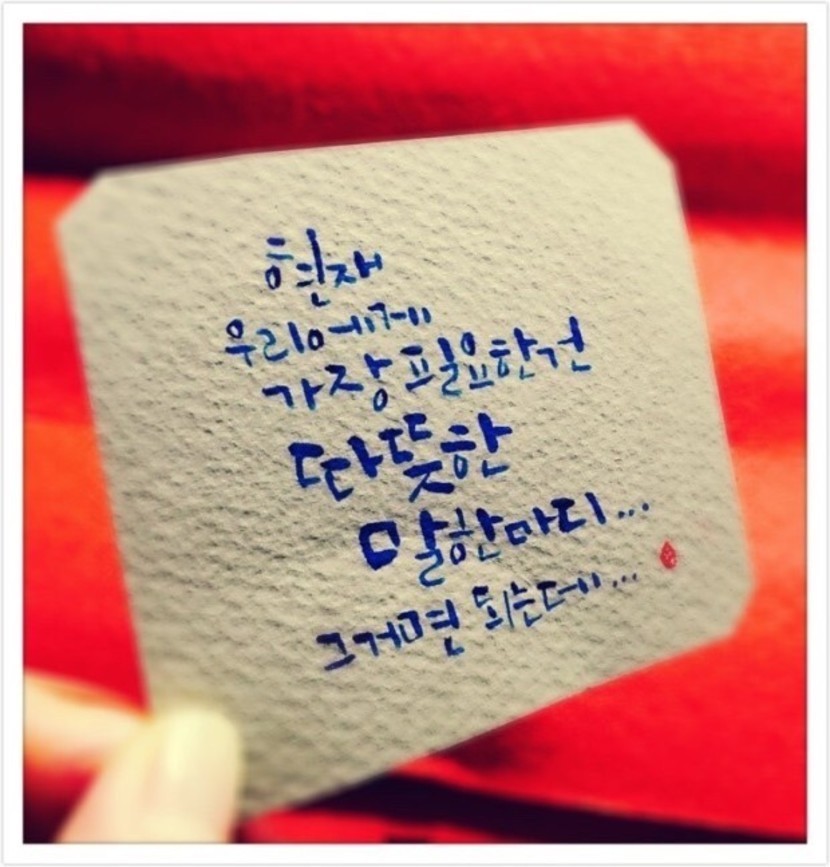 현재
우리에게
가장 필요한건
따뜻한
말한마디...
그거면 되는데...